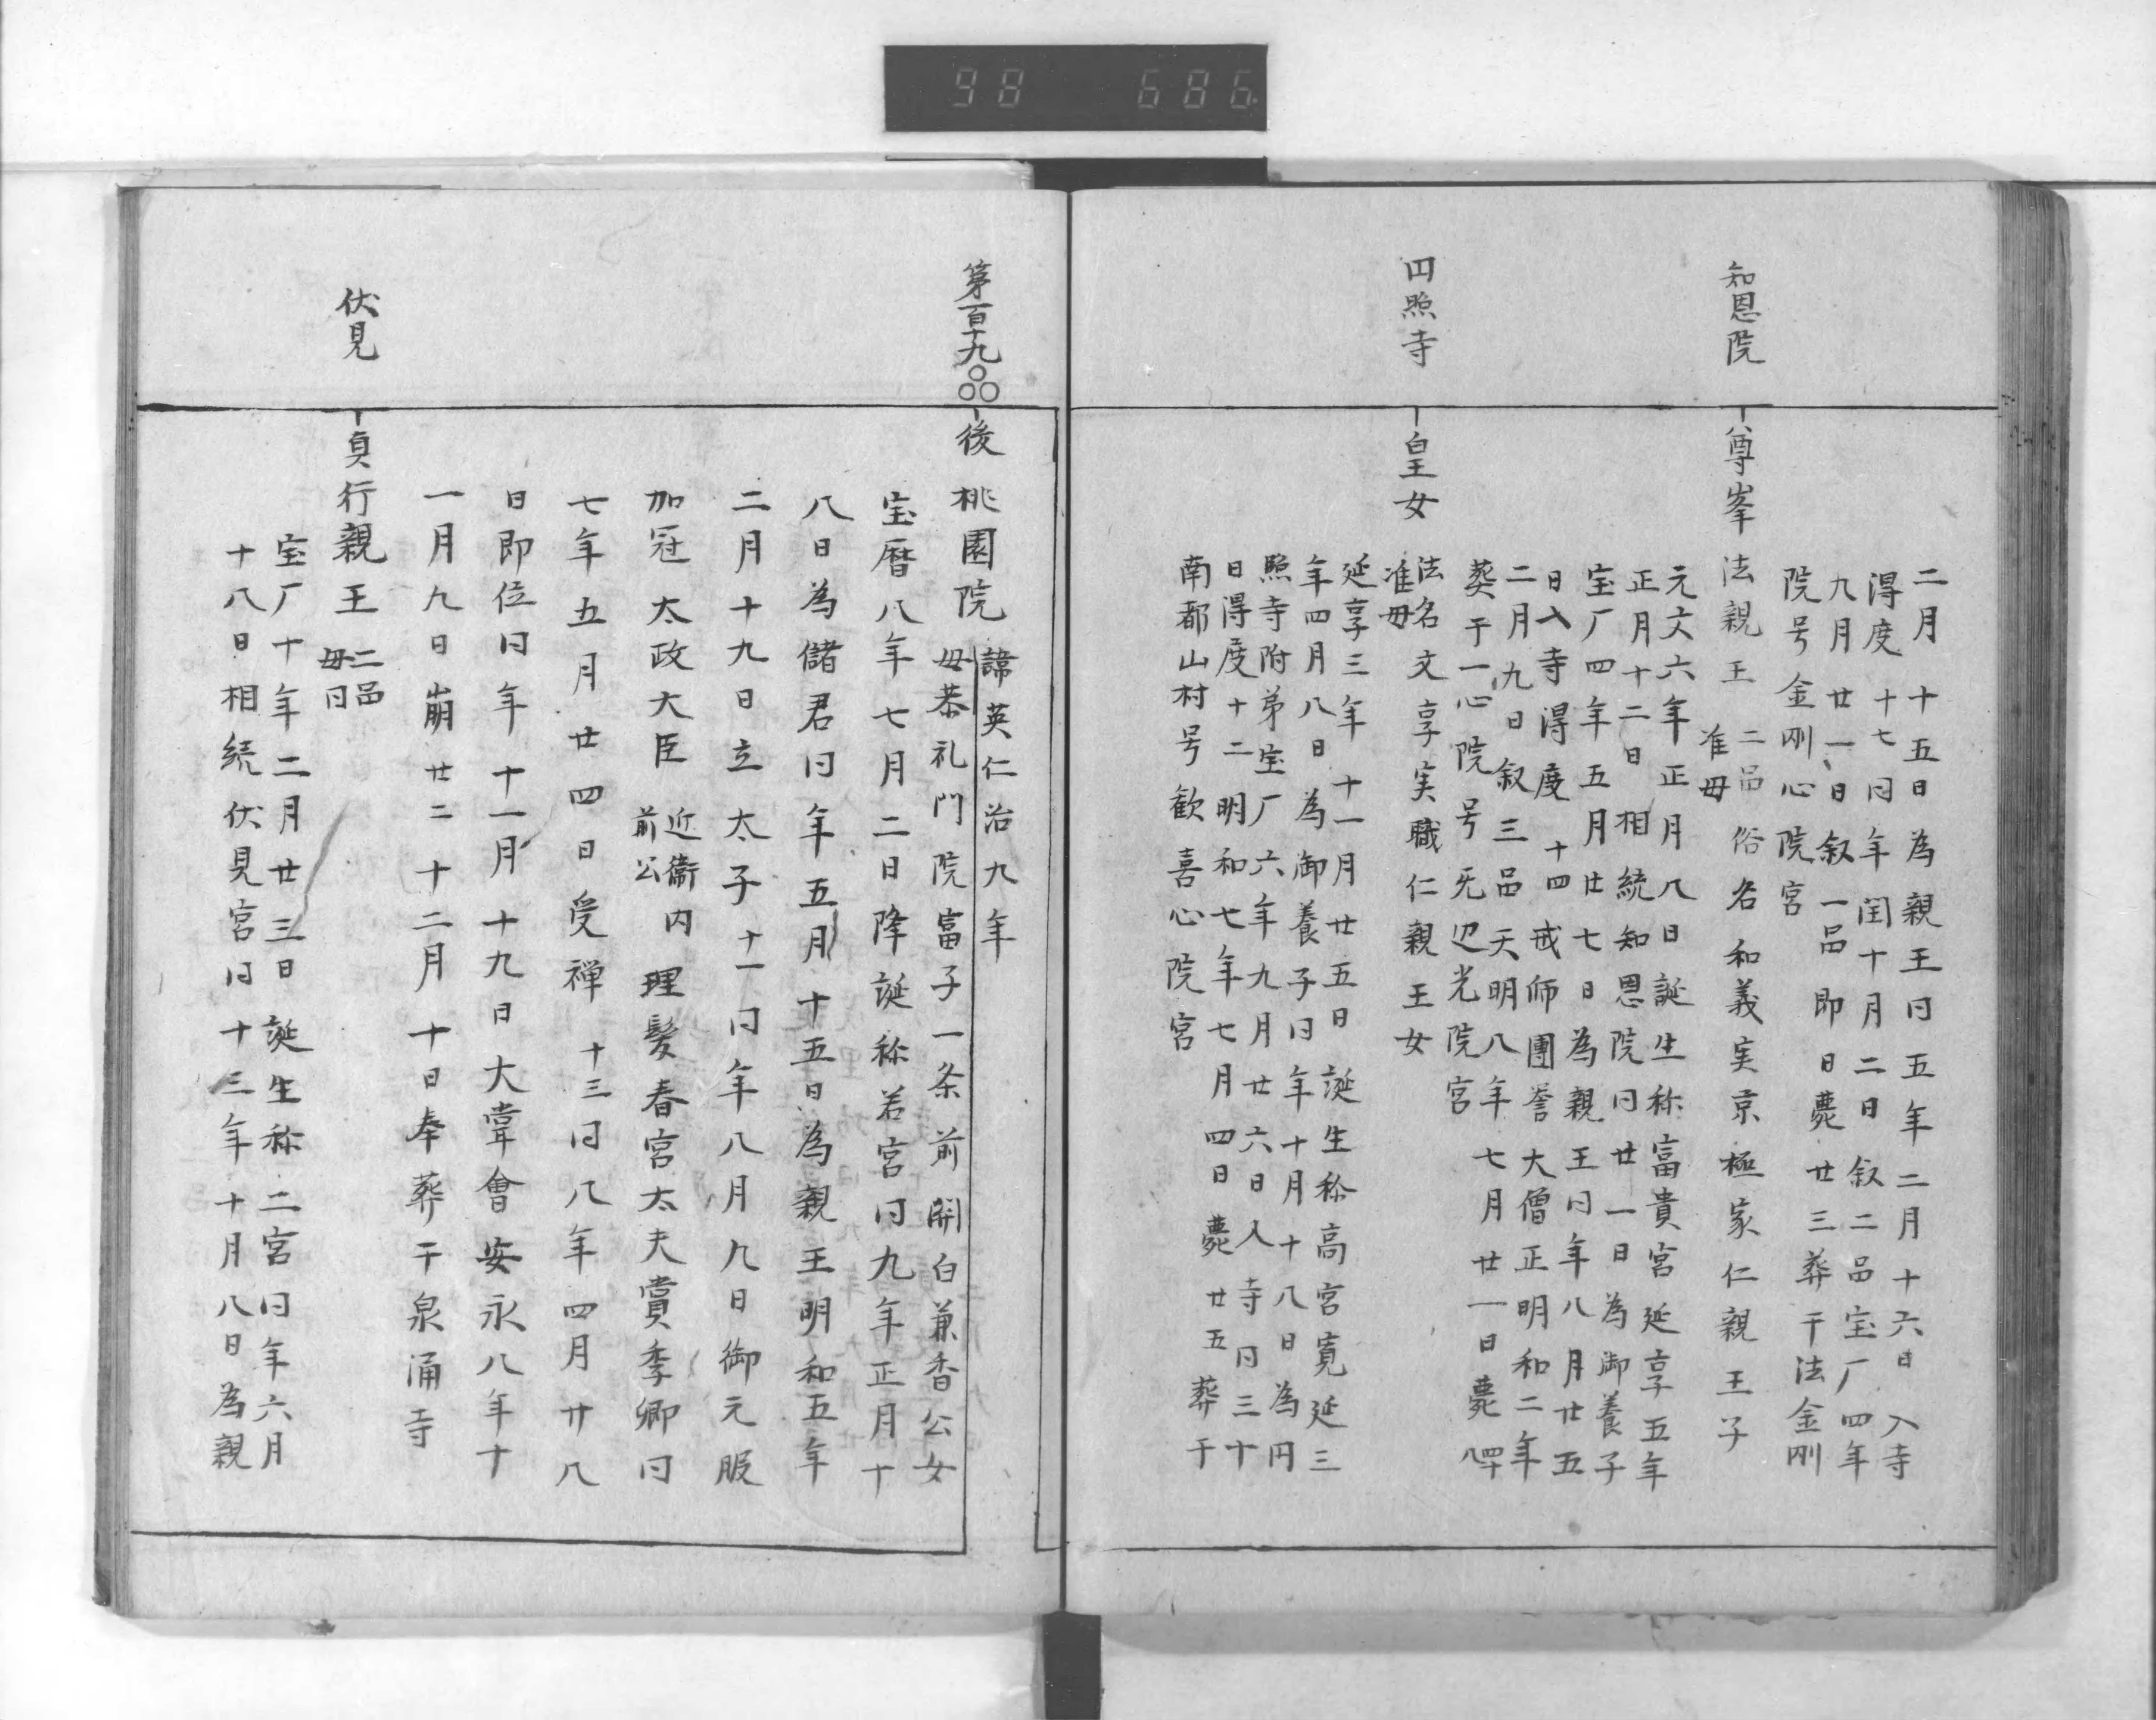 98 686
二月十五日為親王同五年二月十六日入寺
得度十七同年閏十月二日叙二品宝厂四年
九月廿一日叙一品即日薨廿三葬于法金剛
院号金剛心院宮
知恩院
尊峯法親王 二品俗名和義実京極家仁親王子
准母
元文六年正月八日誕生称富貴宮延享五年
正月十二日相続知恩院同廿一日為御養子
宝厂四年五月廿七日為親王同年八月廿五
日入寺得度十四戒师團誉大僧正明和二年
二月九日叙三品天明八年七月廿一日薨四十八
葵于一心院号无辺光院宮
円照寺
皇女 法名文享実職仁親王女
准母
延享三年十一月廿五日誕生称高宮寛延三
年四月八日為御養子同年十月十八日為円
照寺附弟宝厂六年九月廿六日入寺同三十
日得度十二明和七年七月四日薨廿五葬于
南都山村号歓喜心院宮
第百十九
後桃園院 諱英仁治九年
母恭礼門院富子一条前関白兼香公女
宝暦八年七月二日降誕称若宮同九年正月十
八日為儲君同年五月十五日為親王明和五年
二月十九日立太子十一同年八月九日御元服
加冠太政大臣近衛前内公理髪春宮太夫賞季卿同
七年五月廿四日受禅十三同八年四月廿八
日即位同年十一月十九日大甞會安永八年十
一月九日崩廿二十二月十日奉葬于泉涌寺
伏見
貞行親王 二品
母同
宝厂十年二月廿三日誕生称二宮同年六月
十八日相続伏見宮同十三年十月八日為親